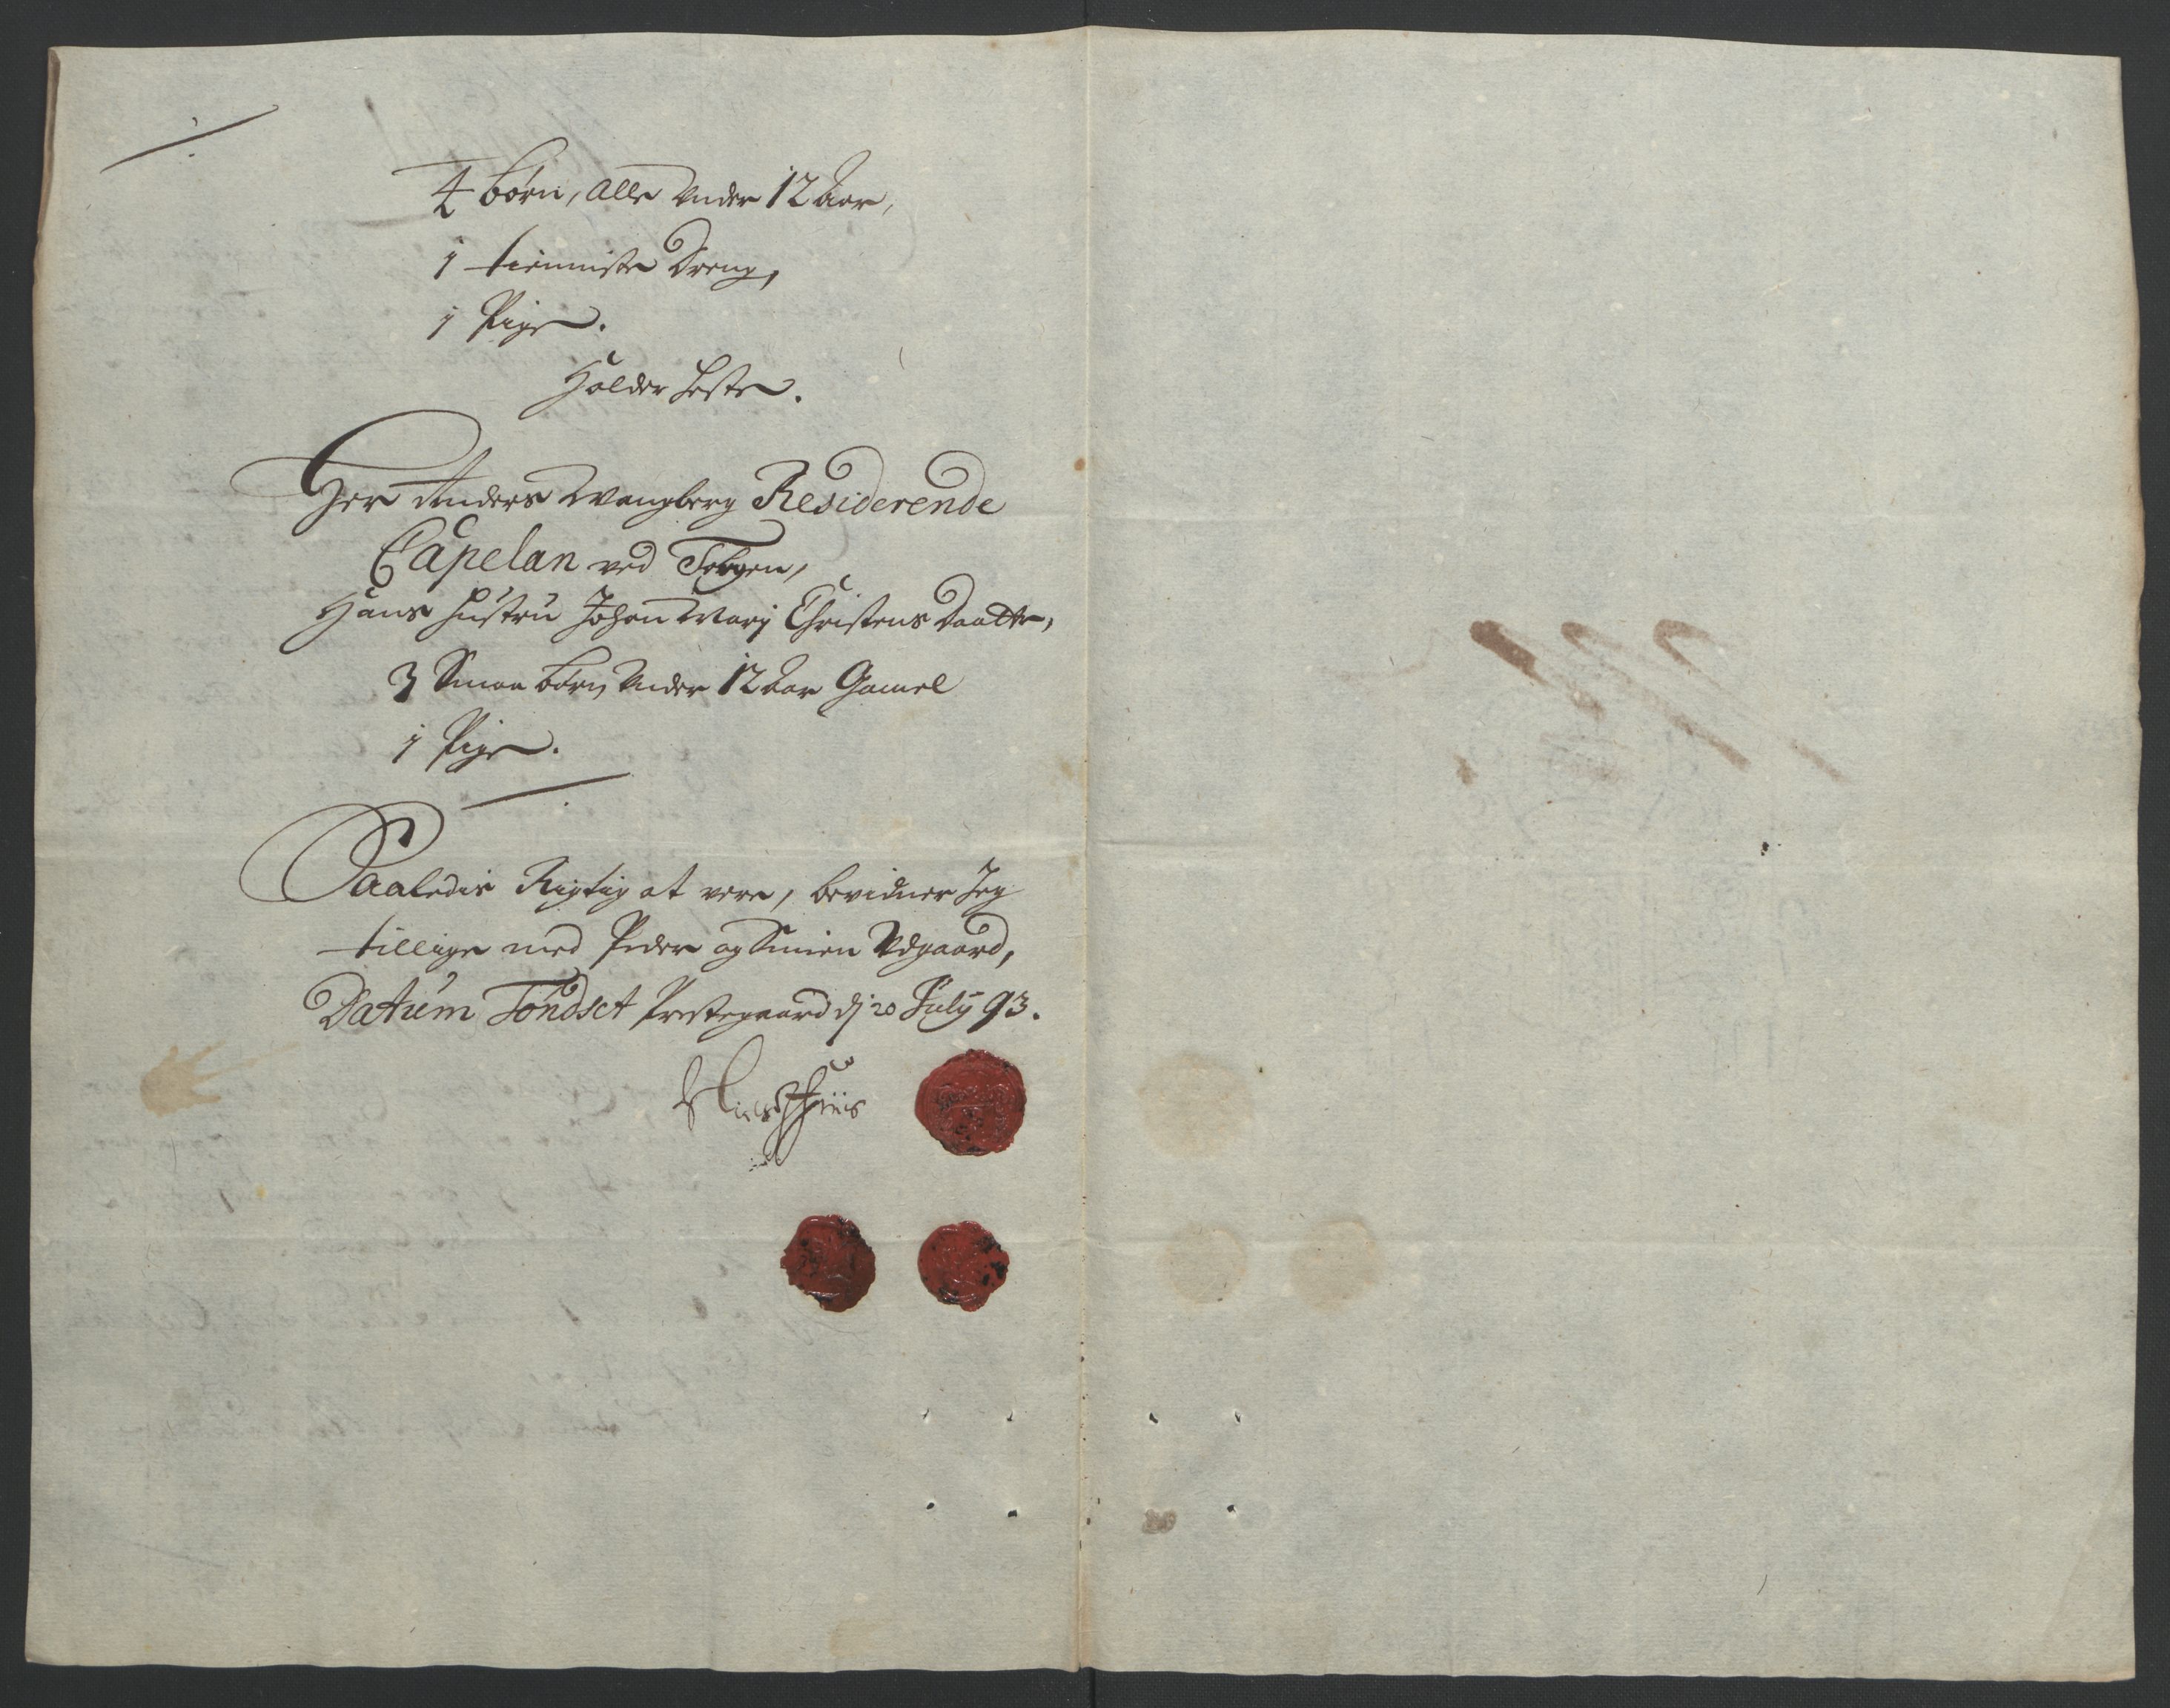 4 börn, alle Under 12 Aar,
1 tienniste Dreng,
1 Pige.
Holder heste.
Her Anders Wangberg Residerende
Capelan ved Tolgen,
Hans hustru Johan Mary Christens Daatter,
3 Smaa börn Under 12 Aar Gamel
1 Pige.
Saaledis Rigtig at vere, bevidner Jeg
tillige med Peder og Simen Udgaard,
Datum Töndset Prestegaard dj 20 July 93.